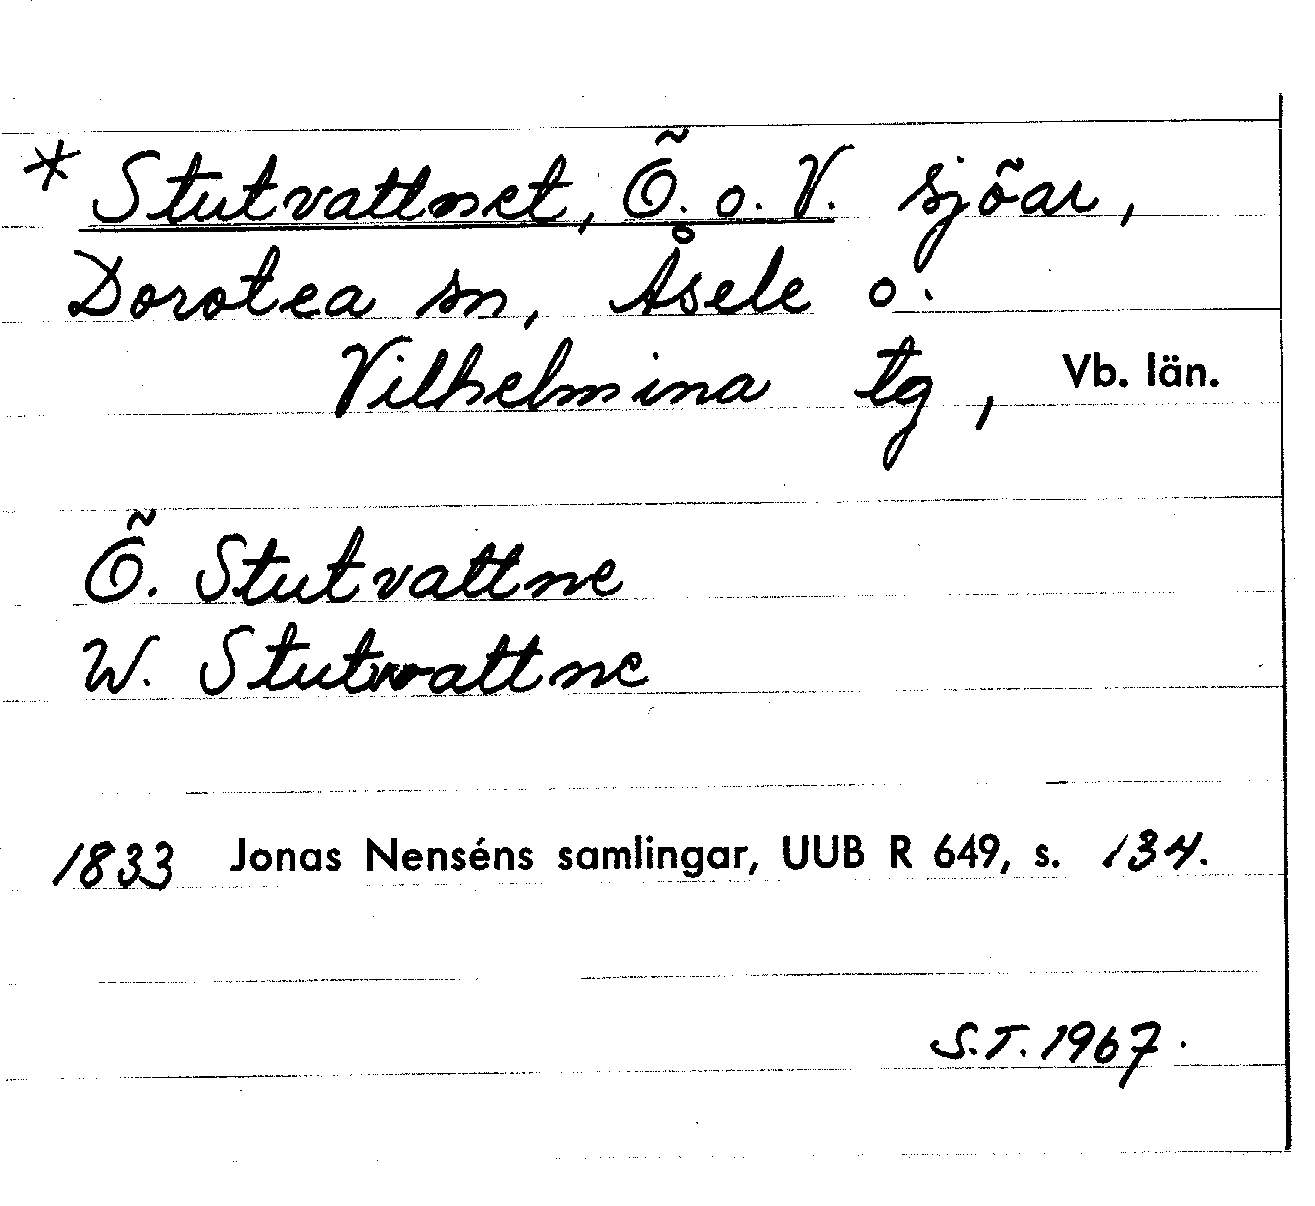 * Stutvattnet, Ö. o. V. sjöar,
Dorotea sn, Åsele o.
Vilhelmina tg, Vb. län.
Ö. Stutvattne
W. Stutwattne
1833 Jonas Nenséns samlingar, UUB R 649, s. 134.
S.T. 1967.